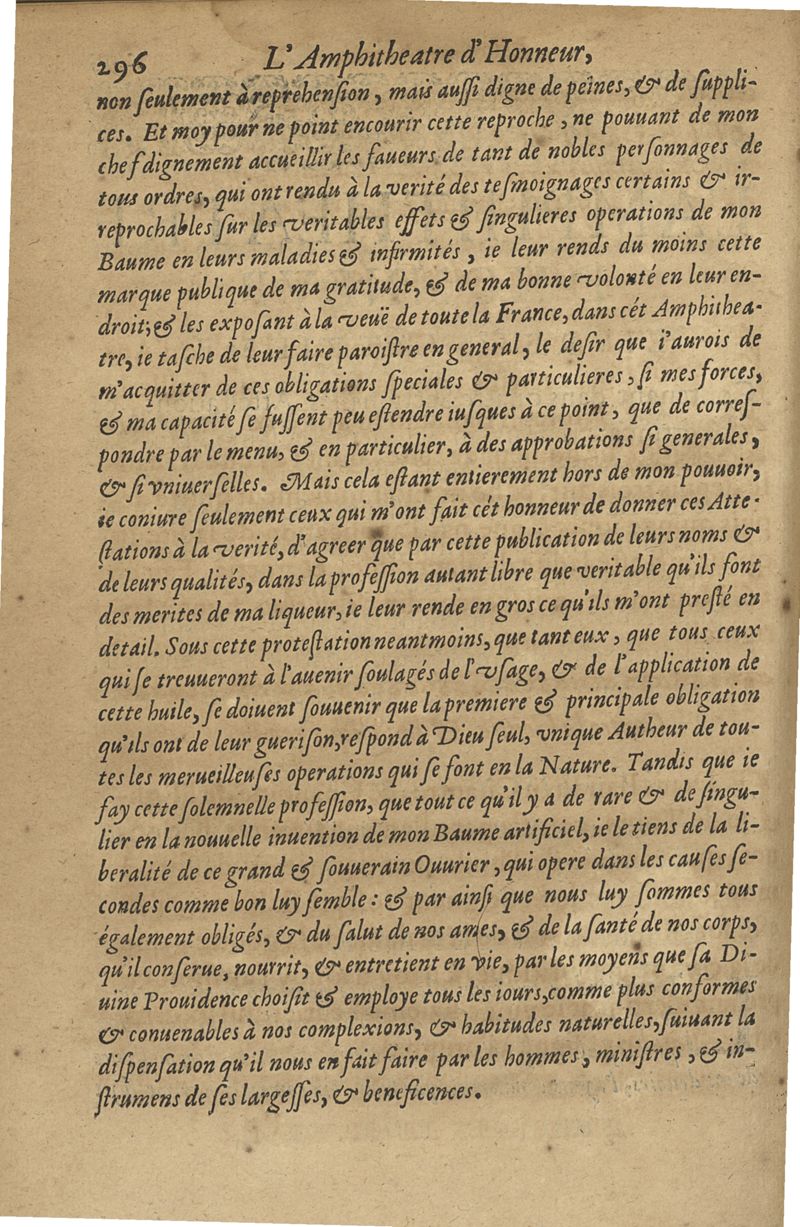 296 L'Amphitheatre d'Honneur,
non ſeulement à reprehenſion, mais auſſi digne de peines, & de ſuppli-
ces. Et moy pour ne point encourir cette reproche, ne pouuant de mon
chef dignement accueillir les faueurs de tant de nobles perſonnages de
tous ordres, qui ont rendu à la verité des teſmoignages certains & ir-
reprochables ſur les veritables effets & ſingulieres operations de mon
Baume en leurs maladies & infirmités, ie leur rends du moins cette
marque publique de ma gratitude, & de ma bonne volonté en leur en-
droit; & les expoſant à la veuë de toute la France, dans cét Amphithea-
tre, ie taſche de leur faire paroiſtre en general, le deſir que i'aurois de
m'acquitter de ces obligations ſpeciales & particulieres, ſi mes forces,
& ma capacité ſe fuſſent peu eſtendre iuſques à ce point, que de correſ-
pondre par le menu, & en particulier, à des approbations ſi generales,
& ſi vniuerſelles. Mais cela eſtant entierement hors de mon pouuoir,
ie coniure ſeulement ceux qui m'ont fait cét honneur de donner ces Atte-
ſtations à la verité, d'agreer que par cette publication de leurs noms &
de leurs qualités, dans la profeſſion autant libre que veritable qu'ils font
des merites de ma liqueur, ie leur rende en gros ce qu'ils m'ont preſté en
detail. Sous cette proteſtation neantmoins, que tant eux, que tous ceux
qui ſe treuueront à l'auenir ſoulagés de l'vſage, & de l'application de
cette huile, ſe doiuent ſouuenir que la premiere & principale obligation
qu'ils ont de leur gueriſon, reſpond à Dieu ſeul, vnique Autheur de tou-
tes les merueilleuſes operations qui ſe font en la Nature. Tandis que ie
fay cette ſolemnelle profeſſion, que tout ce qu'il y a de rare & de ſingu-
lier en la nouuelle inuention de mon Baume artificiel, ie le tiens de la li-
beralité de ce grand & ſouuerain Ouurier, qui opere dans les cauſes ſe-
condes comme bon luy ſemble: & par ainſi que nous luy ſommes tous
également obligés, & du ſalut de nos ames, & de la ſanté de nos corps,
qu'il conſerue, nourrit, & entretient en vie, par les moyens que ſa Di-
uine Prouidence choiſit & employe tous les iours, comme plus conformes
& conuenables à nos complexions, & habitudes naturelles, ſuiuant la
diſpenſation qu'il nous en fait faire par les hommes, miniſtres, & in-
ſtrumens de ſes largeſſes, & beneficences.